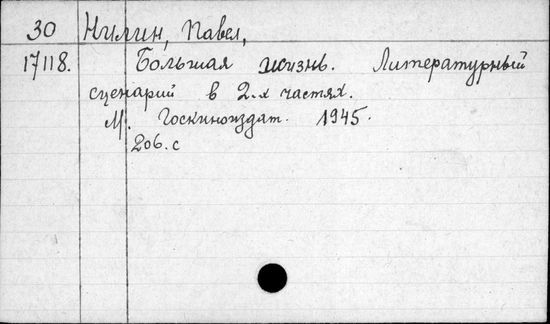 30 Нилин, Павел,
17118. Большая жизнь. Литературный
сценарий в 2-х частях.
М. Госкиноиздат. 1945.
206.с